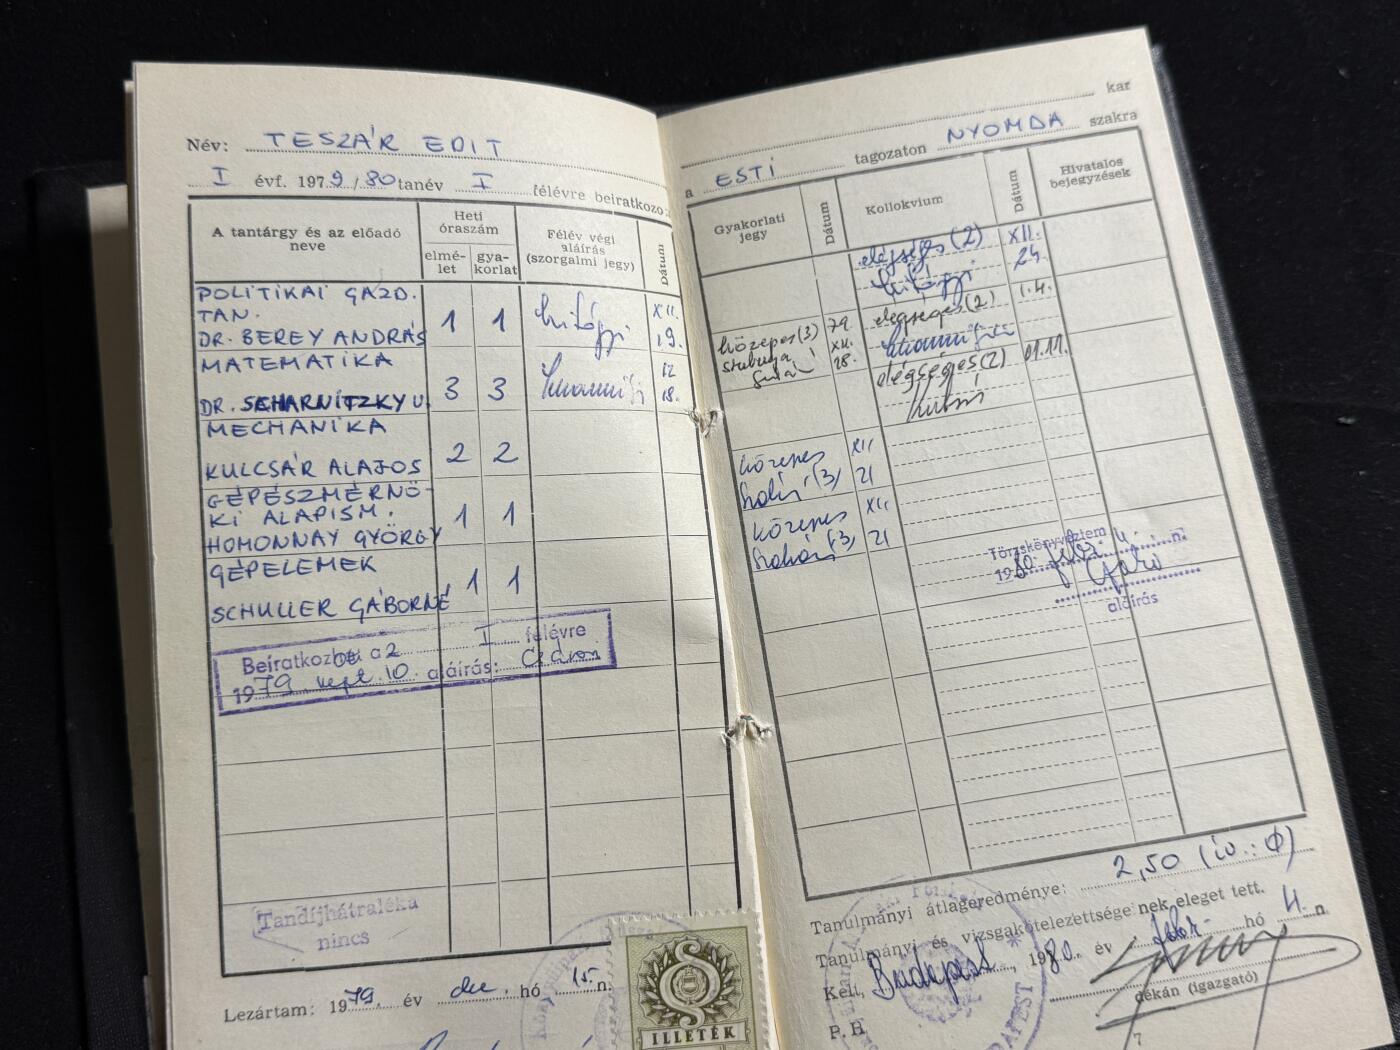 Név: TESZÁR EDIT
I évf. 1979/80 tanév I félévre beiratkozo
A tantárgy és az előadó neve
Heti óraszám
elmé-
let
gya-
korlat
Félév végi
aláírás
(szorgalmi jegy)
Dátum
POLITIKAI GAZD.
TAN.
DR. BEREY ANDRÁS 1 1 XII. 19.
MATEMATIKA
DR. SCHARNITZKY V. 3 3 12 18.
MECHANIKA
KULCSÁR ALAJOS 2 2
GÉPÉSZMÉRNÖ-
KI ALAPISM.
HOMONNAY GYÖRGY 1 1
GÉPELEMEK
SCHULLER GÁBORNÉ 1 1
Beiratkozott a 2 I félévre
1979 szept. 10. aláírás:
Tandíjhátraléka
nincs
Lezártam: 1979. év dec. hó 15. n.
ILLETÉK
kar
a ESTI tagozaton NYOMDA szakra
Gyakorlati
jegy
Dátum
Kollokvium
Dátum
Hivatalos
bejegyzések
elégséges (2) XII. 24.
közepes (3) 79. XII. 18.
elégséges (2) 1.4.
elégséges (2) 01.11.
közepes (3) XII 21
közepes (3) XII. 21
Törzskönyveztem
1980 febr 4. n.
aláírás
Tanulmányi átlageredménye: 2,50 (iv.: Φ)
Tanulmányi és vizsgakötelezettségének eleget tett.
Kelt, Budapest, 1980. év febr. hó 4. n
dékán (igazgató)
P. H.